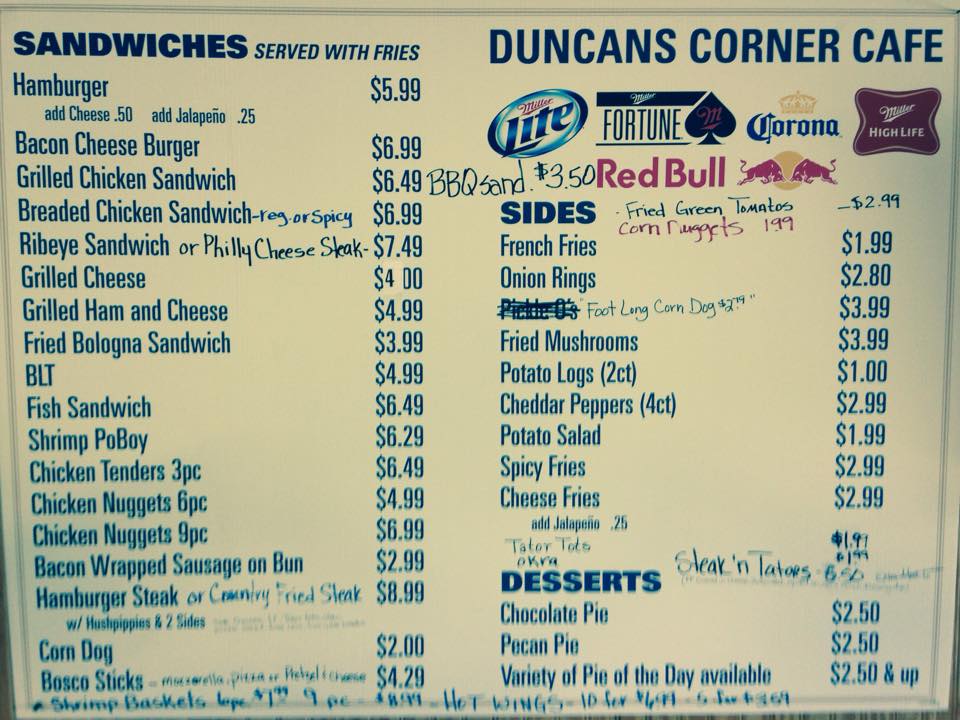 SANDWICHES SERVED WITH FRIES
Hamburger $5.99
add Cheese .50 add Jalapeño .25
Bacon Cheese Burger $6.99
Grilled Chicken Sandwich $6.49 BBQ sand. $3.50
Breaded Chicken Sandwich-reg. or Spicy $6.99
Ribeye Sandwich or Philly Cheese Steak- $7.49
Grilled Cheese $4 00
Grilled Ham and Cheese $4.99
Fried Bologna Sandwich $3.99
BLT $4.99
Fish Sandwich $6.49
Shrimp PoBoy $6.29
Chicken Tenders 3pc $6.49
Chicken Nuggets 6pc $4.99
Chicken Nuggets 9pc $6.99
Bacon Wrapped Sausage on Bun $2.99
Hamburger Steak or Country Fried Steak $8.99
w/ Hushpippies & 2 Sides
Corn Dog $2.00
Bosco Sticks - mozzarella, pizza or Pretzel & cheese $4.29
Shrimp Baskets 6pc 9 pc - $8.99 - HOT WINGS - 10 for 5 for
DUNCANS CORNER CAFE
Miller Lite
Miller FORTUNE M
Corona
Miller HIGH LIFE
Red Bull
SIDES
- Fried Green Tomatos - $2.99
Corn Nuggets 199
French Fries $1.99
Onion Rings $2.80
Pickle O's "Foot Long Corn Dog $2.79" $3.99
Fried Mushrooms $3.99
Potato Logs (2ct) $1.00
Cheddar Peppers (4ct) $2.99
Potato Salad $1.99
Spicy Fries $2.99
Cheese Fries $2.99
add Jalapeño .25
Tator Tots $1.99
okra $1.99
Steak 'n Tators - 8.50
DESSERTS
Chocolate Pie $2.50
Pecan Pie $2.50
Variety of Pie of the Day available $2.50 & up